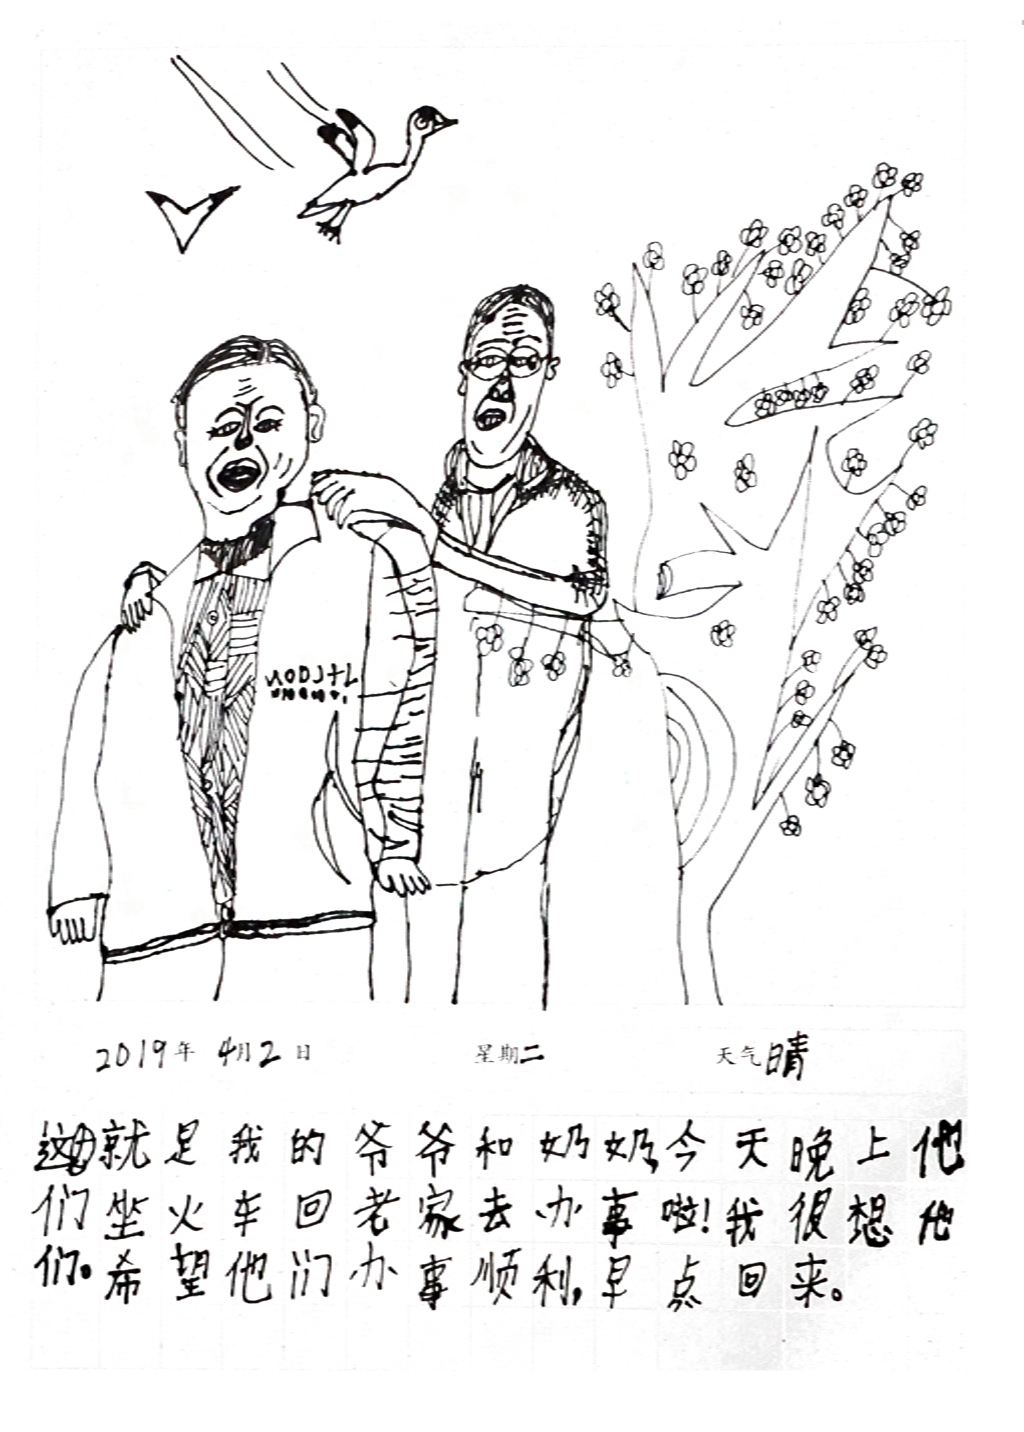 2019年 4月2日 星期二 天气晴
这就是我的爷爷和奶奶,今天晚上他
们坐火车回老家去办事啦!我很想他
们。希望他们办事顺利,早点回来。